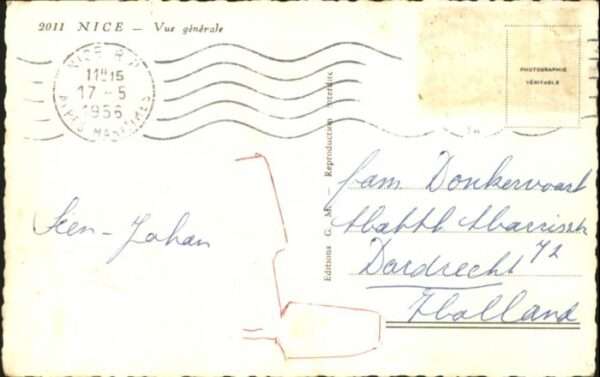 2011 NICE — Vue générale
NICE R.P.
11H15
17-5
1956
ALPES MARITIMES
PHOTOGRAPHIE
VÉRITABLE
Editions G. M. Reproduction interdite
Fam Donkervoort
72
Dordrecht
Holland
Leen-Johan